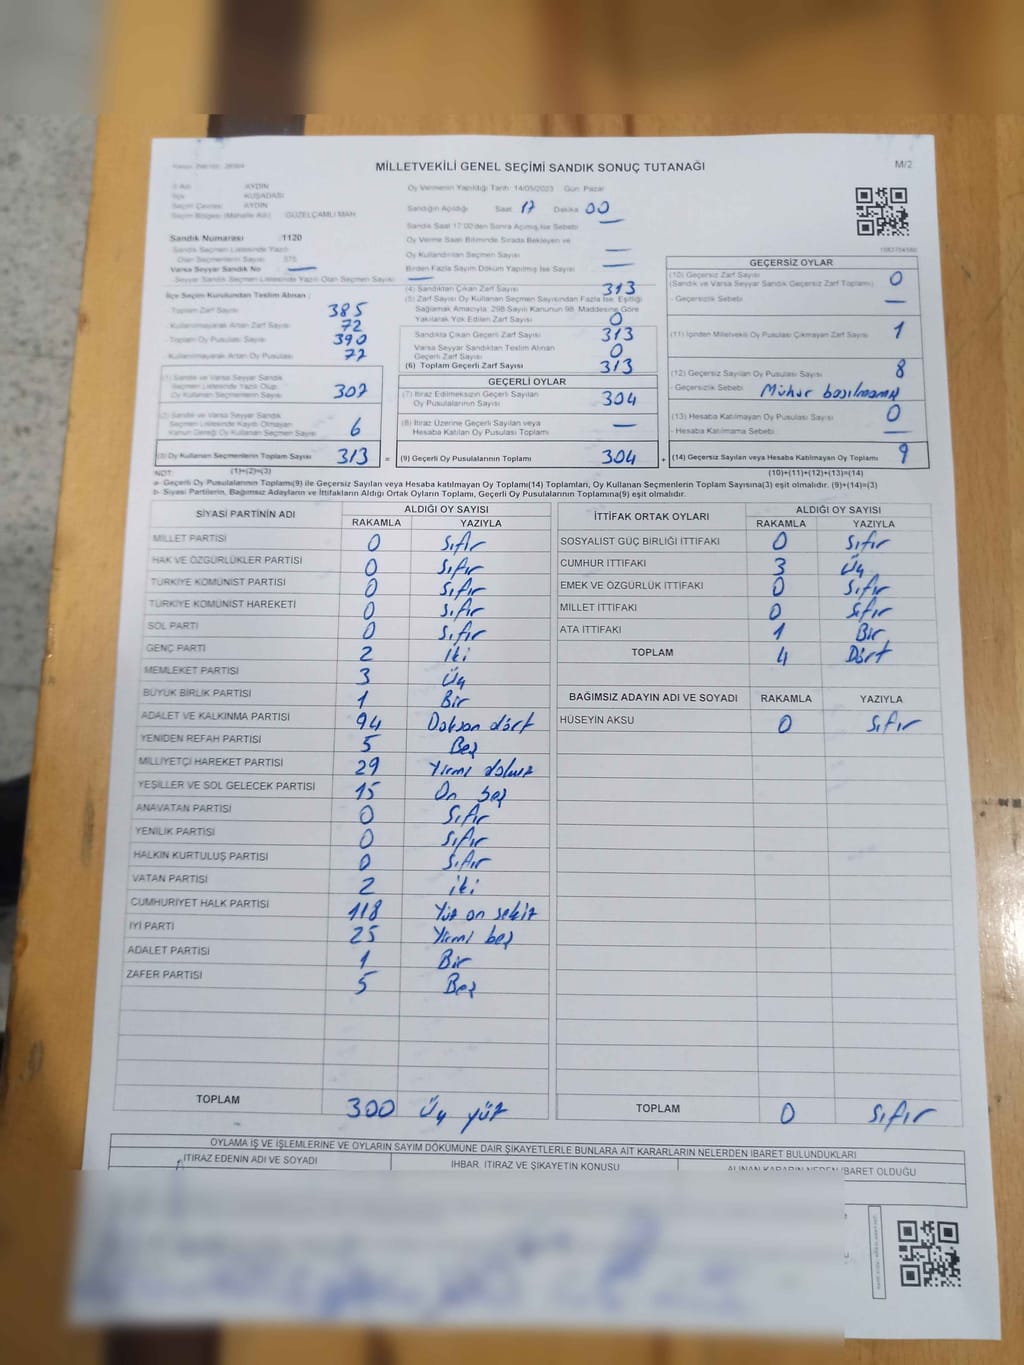 MİLLETVEKİLİ GENEL SEÇİMİ SANDIK SONUÇ TUTANAĞI
M/2
İl Adı AYDIN
İlçe KUŞADASI
Seçim Çevresi AYDIN
Seçim Bölgesi (Mahalle Adı) GÜZELÇAMLI MAH
Oy Vermenin Yapıldığı Tarih 14/05/2023 Gün Pazar
Sandığın Açıldığı Saat 17 Dakika 00
Sandık Saat 17:00'den Sonra Açılmış İse Sebebi —
Sandık Numarası :1120
Sandık Seçmen Listesinde Yazılı
Olan Seçmenlerin Sayısı 375
Varsa Seyyar Sandık No —
Seyyar Sandık Seçmen Listesinde Yazılı Olan Seçmen Sayısı —
Oy Verme Saati Bitiminde Sırada Bekleyen ve
Oy Kullandırılan Seçmen Sayısı —
Birden Fazla Sayım Döküm Yapılmış İse Sayısı —
İlçe Seçim Kurulundan Teslim Alınan :
Toplam Zarf Sayısı 385
- Kullanılmayarak Artan Zarf Sayısı 72
- Toplam Oy Pusulası Sayısı 390
- Kullanılmayarak Artan Oy Pusulası 77
(1) Sandık ve Varsa Seyyar Sandık
Seçmen Listesinde Yazılı Olup
Oy Kullanan Seçmenlerin Sayısı 307
(2) Sandık ve Varsa Seyyar Sandık
Seçmen Listesinde Kayıtlı Olmayan
Kanun Gereği Oy Kullanan Seçmen Sayısı 6
(3) Oy Kullanan Seçmenlerin Toplam Sayısı 313
(1)+(2)=(3)
(4) Sandıktan Çıkan Zarf Sayısı 313
(5) Zarf Sayısı Oy Kullanan Seçmen Sayısından Fazla İse, Eşitliği
Sağlamak Amacıyla, 298 Sayılı Kanunun 98. Maddesine Göre
Yakılarak Yok Edilen Zarf Sayısı 0
Sandıkta Çıkan Geçerli Zarf Sayısı 313
Varsa Seyyar Sandıktan Teslim Alınan
Geçerli Zarf Sayısı 0
(6) Toplam Geçerli Zarf Sayısı 313
GEÇERLİ OYLAR
(7) İtiraz Edilmeksizin Geçerli Sayılan
Oy Pusulalarının Sayısı 304
(8) İtiraz Üzerine Geçerli Sayılan veya
Hesaba Katılan Oy Pusulası Toplamı —
= (9) Geçerli Oy Pusulalarının Toplamı 304
1983764586
GEÇERSİZ OYLAR
(10) Geçersiz Zarf Sayısı
(Sandık ve Varsa Seyyar Sandık Geçersiz Zarf Toplamı) 0
- Geçersizlik Sebebi —
(11) İçinden Milletvekili Oy Pusulası Çıkmayan Zarf Sayısı 1
(12) Geçersiz Sayılan Oy Pusulası Sayısı 8
- Geçersizlik Sebebi Mühür basılmamış
(13) Hesaba Katılmayan Oy Pusulası Sayısı 0
- Hesaba Katılmama Sebebi —
+ (14) Geçersiz Sayılan veya Hesaba Katılmayan Oy Toplamı 9
(10)+(11)+(12)+(13)=(14)
NOT:
a- Geçerli Oy Pusulaları Toplamı(9) ile Geçersiz Sayılan veya Hesaba katılmayan Oy Toplamı(14) Toplamları, Oy Kullanan Seçmenlerin Toplam Sayısına(3) eşit olmalıdır. (9)+(14)=(3)
b- Siyasi Partilerin, Bağımsız Adayların ve İttifakların Aldığı Ortak Oyların Toplamı, Geçerli Oy Pusulalarının Toplamına(9) eşit olmalıdır.
SİYASİ PARTİNİN ADI ALDIĞI OY SAYISI
RAKAMLA YAZIYLA
MİLLET PARTİSİ 0 Sıfır
HAK VE ÖZGÜRLÜKLER PARTİSİ 0 Sıfır
TÜRKİYE KOMÜNİST PARTİSİ 0 Sıfır
TÜRKİYE KOMÜNİST HAREKETİ 0 Sıfır
SOL PARTİ 0 Sıfır
GENÇ PARTİ 2 İki
MEMLEKET PARTİSİ 3 Üç
BÜYÜK BİRLİK PARTİSİ 1 Bir
ADALET VE KALKINMA PARTİSİ 94 Doksan dört
YENİDEN REFAH PARTİSİ 5 Beş
MİLLİYETÇİ HAREKET PARTİSİ 29 Yirmi dokuz
YEŞİLLER VE SOL GELECEK PARTİSİ 15 On beş
ANAVATAN PARTİSİ 0 Sıfır
YENİLİK PARTİSİ 0 Sıfır
HALKIN KURTULUŞ PARTİSİ 0 Sıfır
VATAN PARTİSİ 2 iki
CUMHURİYET HALK PARTİSİ 118 Yüz on sekiz
İYİ PARTİ 25 Yirmi beş
ADALET PARTİSİ 1 Bir
ZAFER PARTİSİ 5 Beş
TOPLAM 300 Üç yüz
İTTİFAK ORTAK OYLARI ALDIĞI OY SAYISI
RAKAMLA YAZIYLA
SOSYALİST GÜÇ BİRLİĞİ İTTİFAKI 0 Sıfır
CUMHUR İTTİFAKI 3 Üç
EMEK VE ÖZGÜRLÜK İTTİFAKI 0 Sıfır
MİLLET İTTİFAKI 0 Sıfır
ATA İTTİFAKI 1 Bir
TOPLAM 4 Dört
BAĞIMSIZ ADAYIN ADI VE SOYADI RAKAMLA YAZIYLA
HÜSEYİN AKSU 0 Sıfır
TOPLAM 0 Sıfır
OYLAMA İŞ VE İŞLEMLERİNE VE OYLARIN SAYIM DÖKÜMÜNE DAİR ŞİKAYETLERLE BUNLARA AİT KARARLARIN NELERDEN İBARET BULUNDUKLARI
İTİRAZ EDENİN ADI VE SOYADI İHBAR, İTİRAZ VE ŞİKAYETİN KONUSU ALINAN KARARIN NEDEN İBARET OLDUĞU